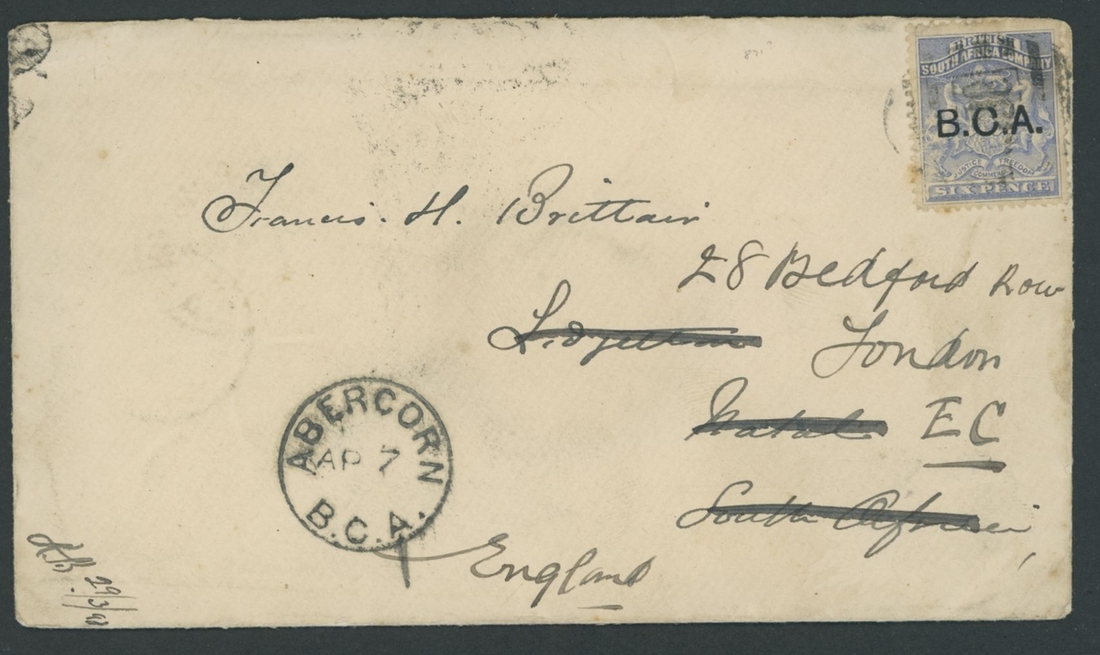 BRITISH
SOUTH AFRICA COMPANY
B.C.A.
JUSTICE FREEDOM
COMMERCE
SIX PENCE
Francis. H. Brittain
28 Bedford Row
London
Natal EC
South Africa
England
ABERCORN
AP 7
B.C.A.
29/3/98